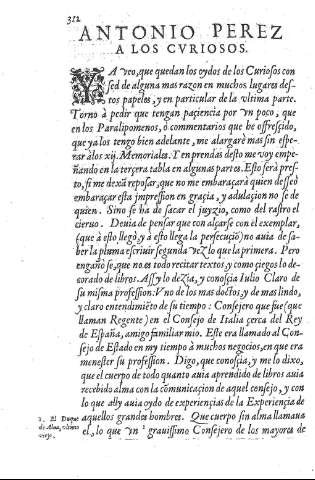 312
ANTONIO PEREZ
A LOS CVRIOSOS.
YA veo, que quedan los oydos de los Curiosos con
sed de alguna mas razon en muchos lugares des-
tos papeles, y en particular de la vltima parte.
Torno à pedir que tengan paciencia por vn poco, que
en los Paralipomenos, ò commentarios que he offrescido,
que ya los tengo bien adelante, me alargarè mas sin espe-
rar à los xij. Memoriales. Y en prendas desto me voy empe-
ñando en la tercera tabla en algunas partes. Esto serà pres-
to, si me dexã reposar, que no me embaraçarà quien desseò
embaraçar esta impression en gracia, y adulacion no se de
quien. Sino se ha de sacar el juyzio, como del rastro el
cieruo. Deuia de pensar que con alçarse con el exemplar,
(que à esto llegò, y à esto llega la persecuciõ) no auia de sa-
ber la pluma escriuir segunda vez lo que la primera. Pero
engañose, que no es todo recitar textos, y como ciegos lo de-
corado de libros. Assy lo dezia, y conoscia Iulio Claro de
su misma profession: Vno de los mas doctos, y de mas lindo,
y claro entendimiẽto de su tiempo: Consejero que fue (que
llaman Regente) en el Consejo de Italia cerca del Rey
de España, amigo familiar mio. Este era llamado al Con-
sejo de Estado en my tiempo à muchos negocios, en que era
menester su profession. Digo, que conoscia, y me lo dixo,
que el cuerpo de todo quanto auia aprendido de libros auia
recebido alma con la cõmunicacion de aquel consejo, y con
lo que ally auia oydo de experiencias de la Experiencia de
aquellos grandes hombres. Que cuerpo sin alma llamaua
el, lo que vn ¹ grauissimo Consejero de los mayores de
1. El Duque
de Alua, vltimo
viejo.